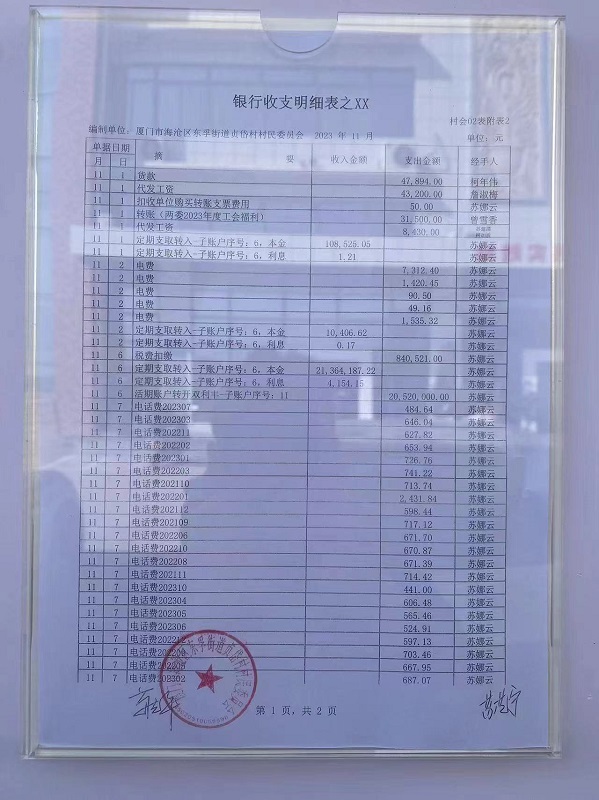 银行收支明细表之XX
村会02表附表2
编制单位：厦门市海沧区东孚街道贞岱村村民委员会 2023 年 11 月 单位：元
单据日期 摘 要 收入金额 支出金额 经手人
月 日
11 1 货款 47,894.00 柯年伟
11 1 代发工资 43,200.00 詹淑梅
11 1 扣收单位购买转账支票费用 50.00 苏娜云
11 1 转账（两委2023年度工会福利） 31,500.00 曾雪香
11 1 代发工资 8,430.00
11 1 定期支取转入-子账户序号：6，本金 108,525.05 苏娜云
11 1 定期支取转入-子账户序号：6，利息 1.21 苏娜云
11 2 电费 7,312.40 苏娜云
11 2 电费 1,420.45 苏娜云
11 2 电费 90.50 苏娜云
11 2 电费 49.16 苏娜云
11 2 电费 1,535.32 苏娜云
11 2 定期支取转入-子账户序号：6，本金 10,406.62 苏娜云
11 2 定期支取转入-子账户序号：6，利息 0.17 苏娜云
11 6 税费扣缴 840,521.00 苏娜云
11 6 定期支取转入-子账户序号：6，本金 21,364,187.22 苏娜云
11 6 定期支取转入-子账户序号：6，利息 4,154.15 苏娜云
11 6 活期账户转开双利丰-子账户序号：11 20,520,000.00 苏娜云
11 7 电话费202307 484.64 苏娜云
11 7 电话费202303 646.04 苏娜云
11 7 电话费202211 627.82 苏娜云
11 7 电话费202302 653.94 苏娜云
11 7 电话费202301 726.76 苏娜云
11 7 电话费202203 741.22 苏娜云
11 7 电话费202110 713.74 苏娜云
11 7 电话费202201 2,431.84 苏娜云
11 7 电话费202112 598.44 苏娜云
11 7 电话费202109 717.12 苏娜云
11 7 电话费202206 671.70 苏娜云
11 7 电话费202210 670.87 苏娜云
11 7 电话费202208 671.39 苏娜云
11 7 电话费202111 714.42 苏娜云
11 7 电话费202310 441.00 苏娜云
11 7 电话费202304 606.48 苏娜云
11 7 电话费202305 565.46 苏娜云
11 7 电话费202306 524.91 苏娜云
11 7 电话费202212 597.13 苏娜云
11 7 电话费202209 703.46 苏娜云
11 7 电话费202205 667.95 苏娜云
11 7 电话费202202 687.07 苏娜云
第 1 页，共 2 页